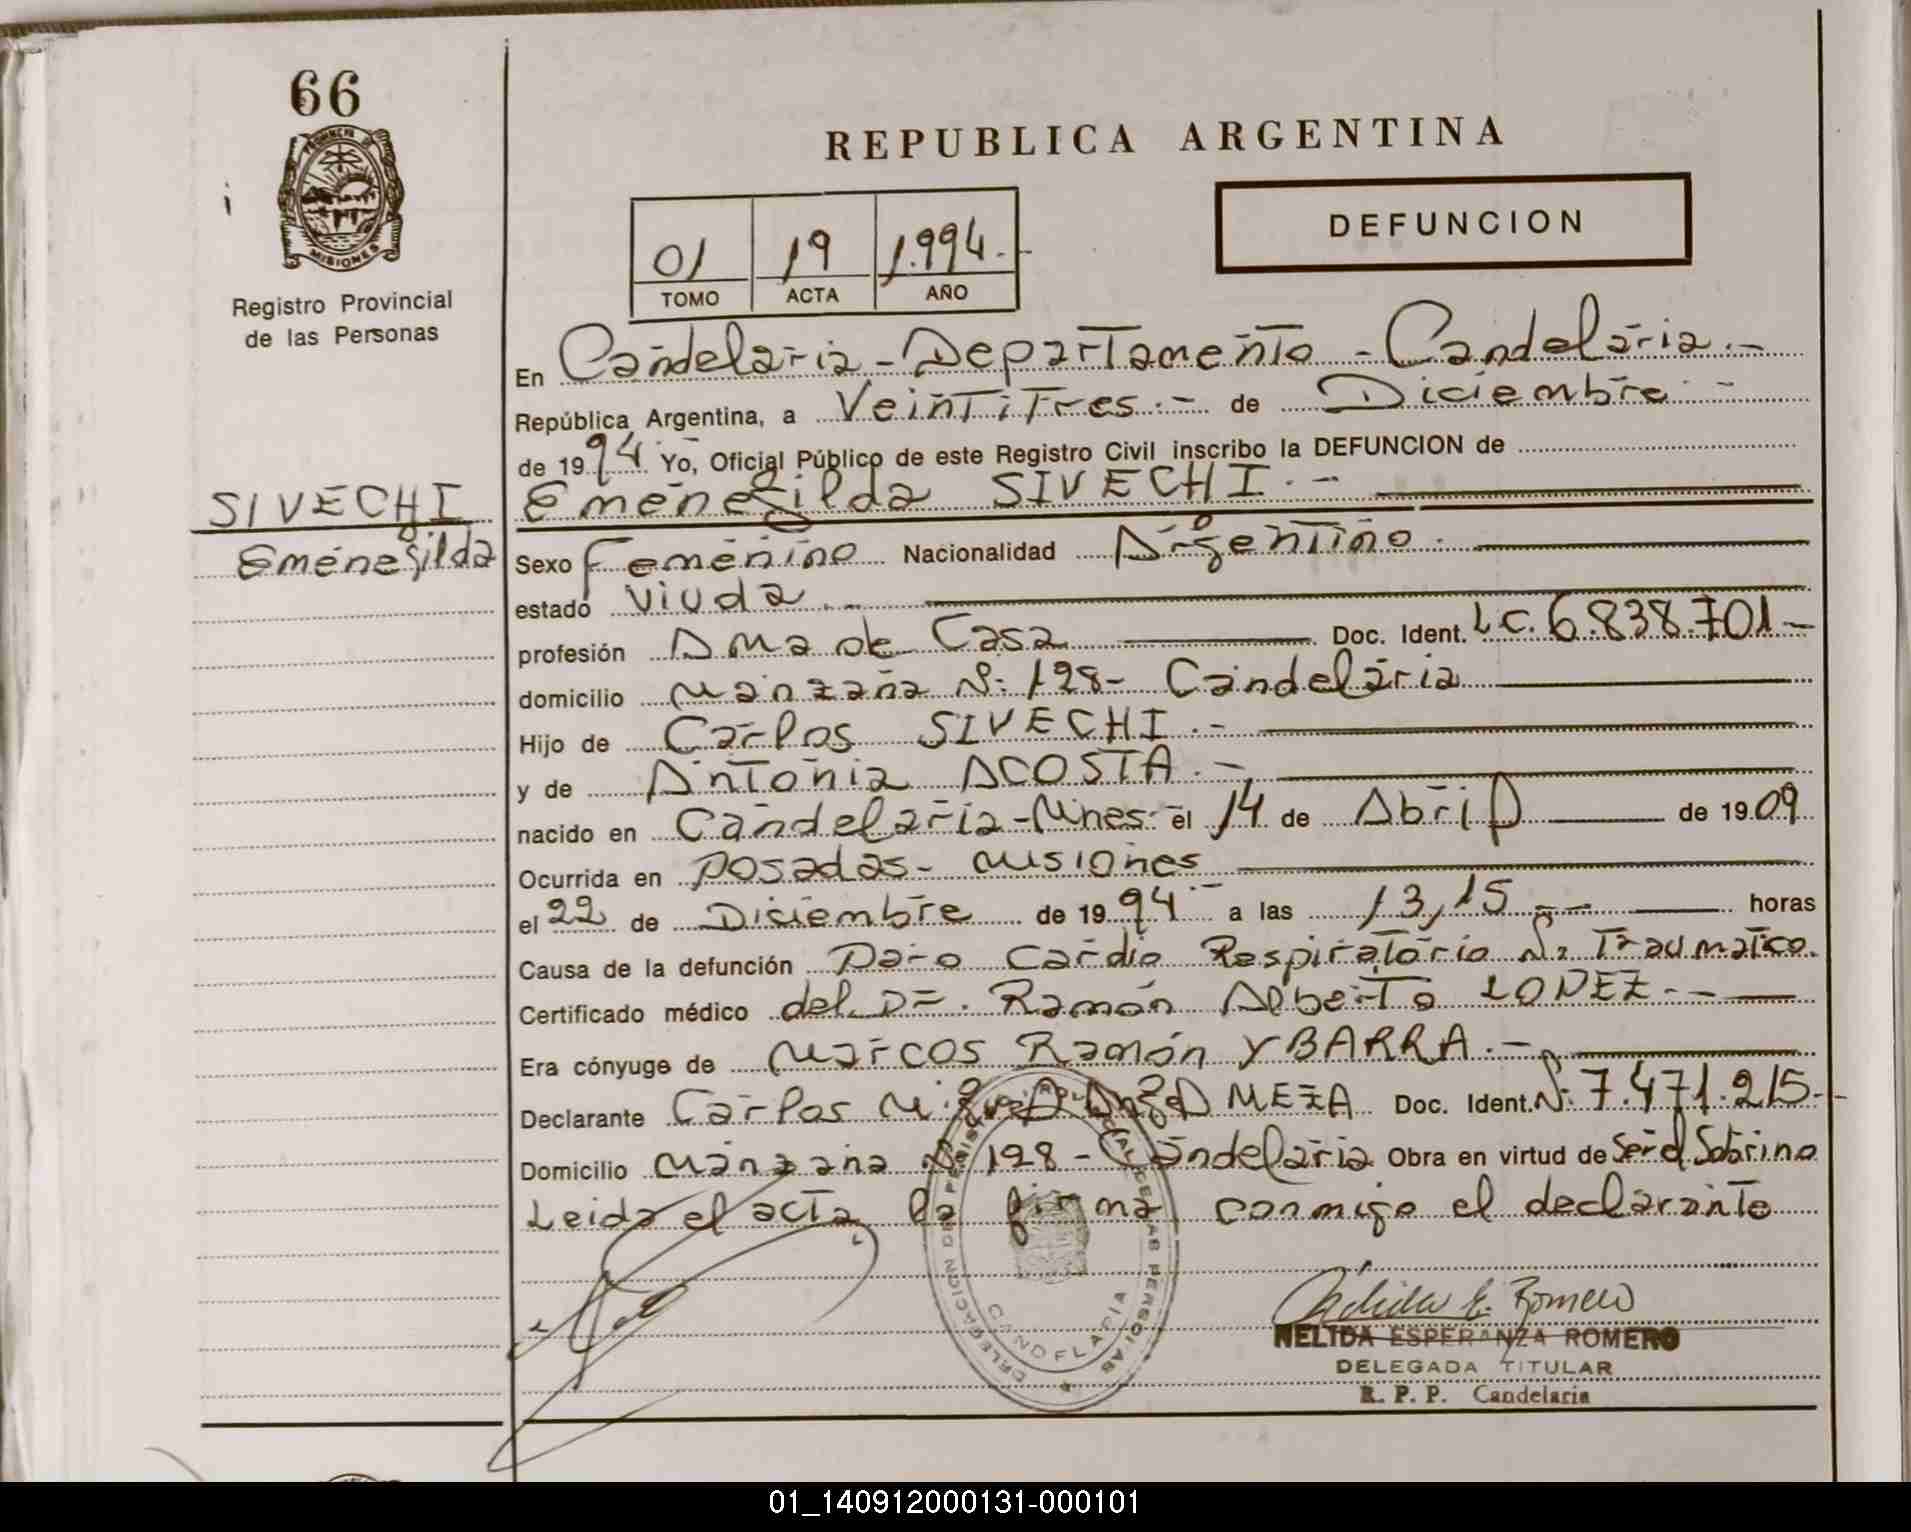 66
PROVINCIA DE
MISIONES
Registro Provincial
de las Personas
REPUBLICA ARGENTINA
01 19 1.994.-
TOMO ACTA AÑO
DEFUNCION
En Candelaria - Departamento - Candelaria.-
República Argentina, a Veintitres.- de Diciembre.-
de 1994 Yo, Oficial Público de este Registro Civil inscribo la DEFUNCION de
SIVECHI
Emenegilda
Emenegilda SIVECHI.-
Sexo Femenino Nacionalidad Argentino.
estado Viuda.-
profesión Ama de Casa Doc. Ident. L.C. 6.838.701-
domicilio Manzana Nº 128- Candelaria
Hijo de Carlos SIVECHI.-
y de Antonia ACOSTA.-
nacido en Candelaria-Mnes. el 14 de Abril de 1909
Ocurrida en Posadas- Misiones
el 22 de Diciembre de 1994 a las 13,15 horas
Causa de la defunción Paro Cardio Respiratorio No Traumatico.
Certificado médico del Dr. Ramón Alberto LOPEZ.-
Era cónyuge de Marcos Ramón YBARRA.-
Declarante Carlos Miguel Angel MEZA Doc. Ident. Nº 7.471.215-
Domicilio Manzana Nº 128 - Candelaria Obra en virtud de Ser el Sobrino
Leida el acta la firma conmigo el declarante
DELEGACION DEL REGISTRO PROVINCIAL DE LAS PERSONAS
CANDELARIA
Nélida E. Romero
NELIDA ESPERANZA ROMERO
DELEGADA TITULAR
R. P. P. Candelaria
01_140912000131-000101